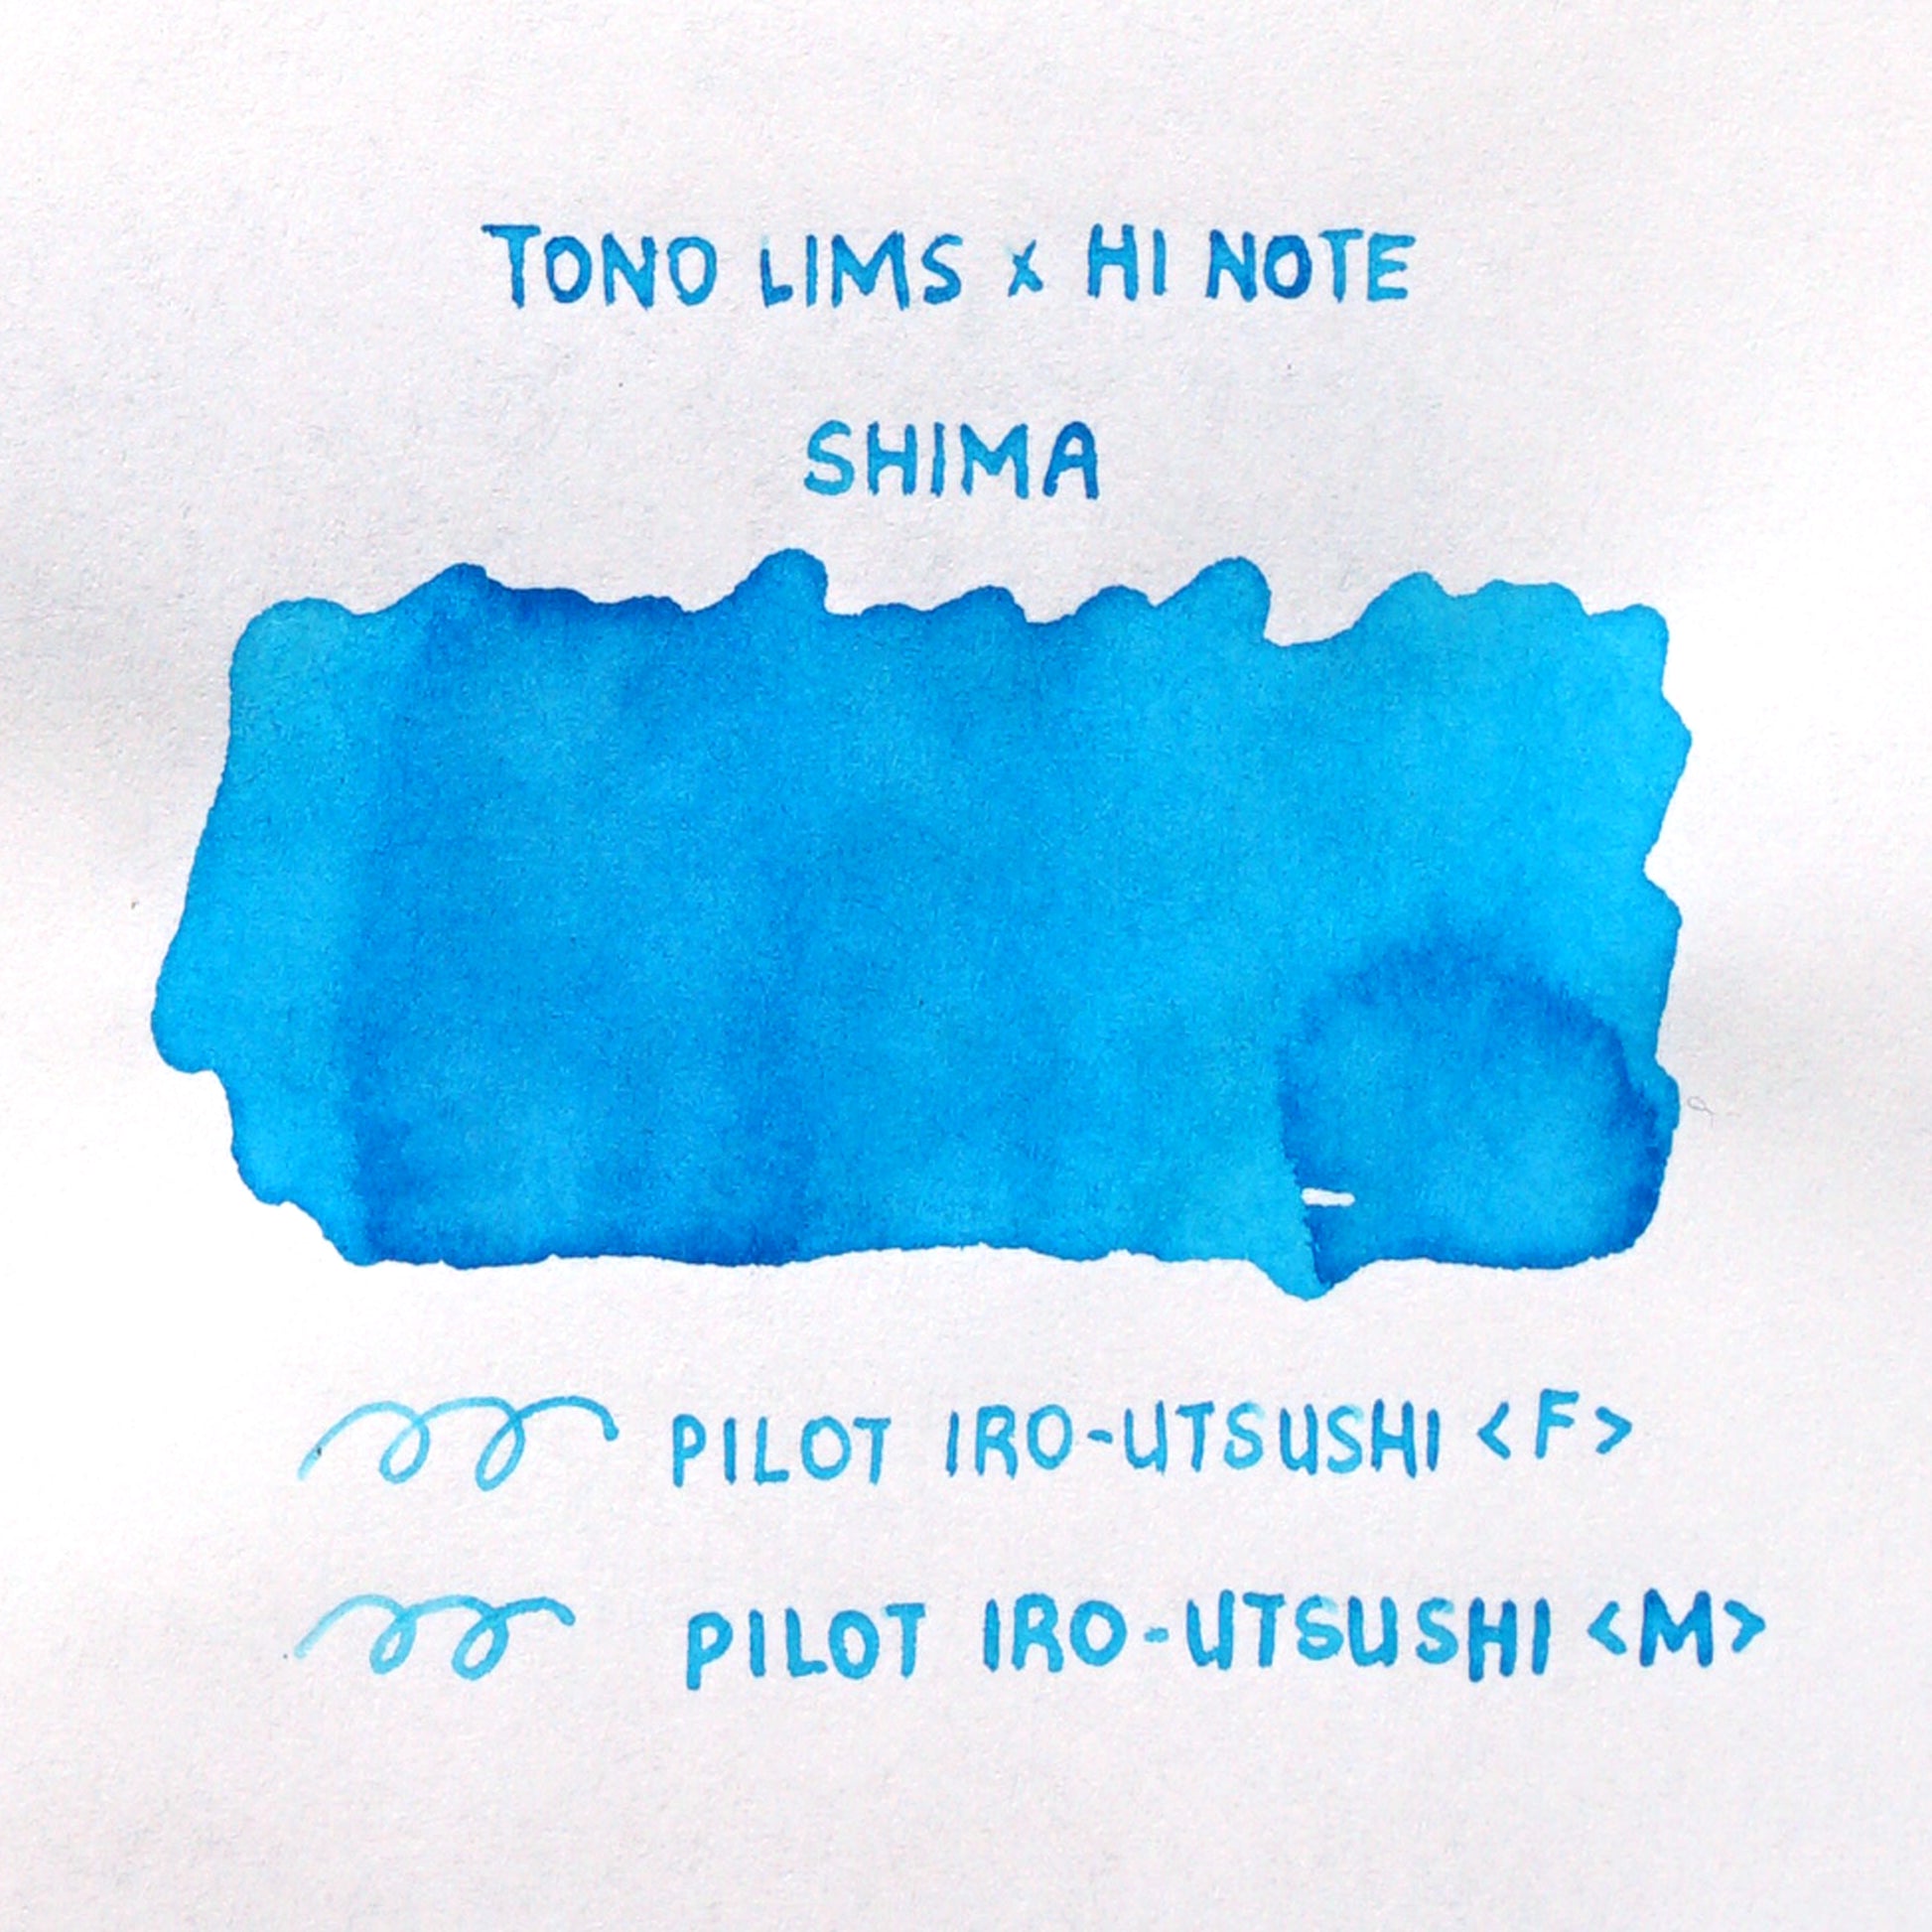 TONO LIMS x HI NOTE
SHIMA
PILOT IRO-UTSUSHI <F>
PILOT IRO-UTSUSHI <M>